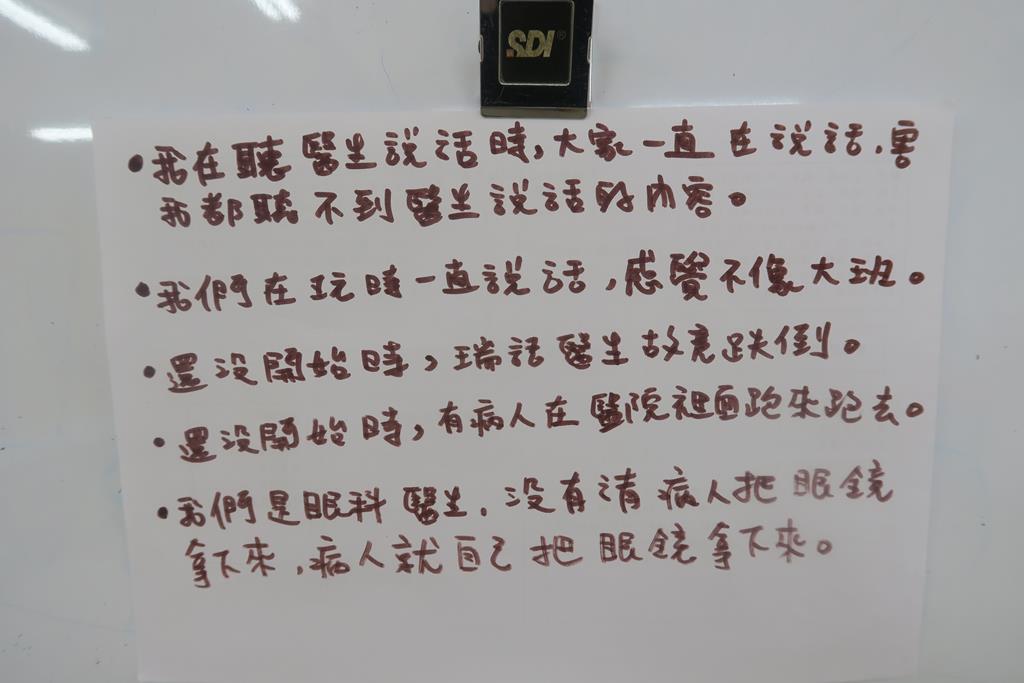 SDI®
•我在聽醫生說話時,大家一直在說話,害
我都聽不到醫生說話的內容。
•我們在玩時一直說話,感覺不像大班。
•還沒開始時,瑞話醫生故意跌倒。
•還沒開始時,有病人在醫院裡面跑來跑去。
•我們是眼科醫生,沒有請病人把眼鏡
拿下來,病人就自己把眼鏡拿下來。